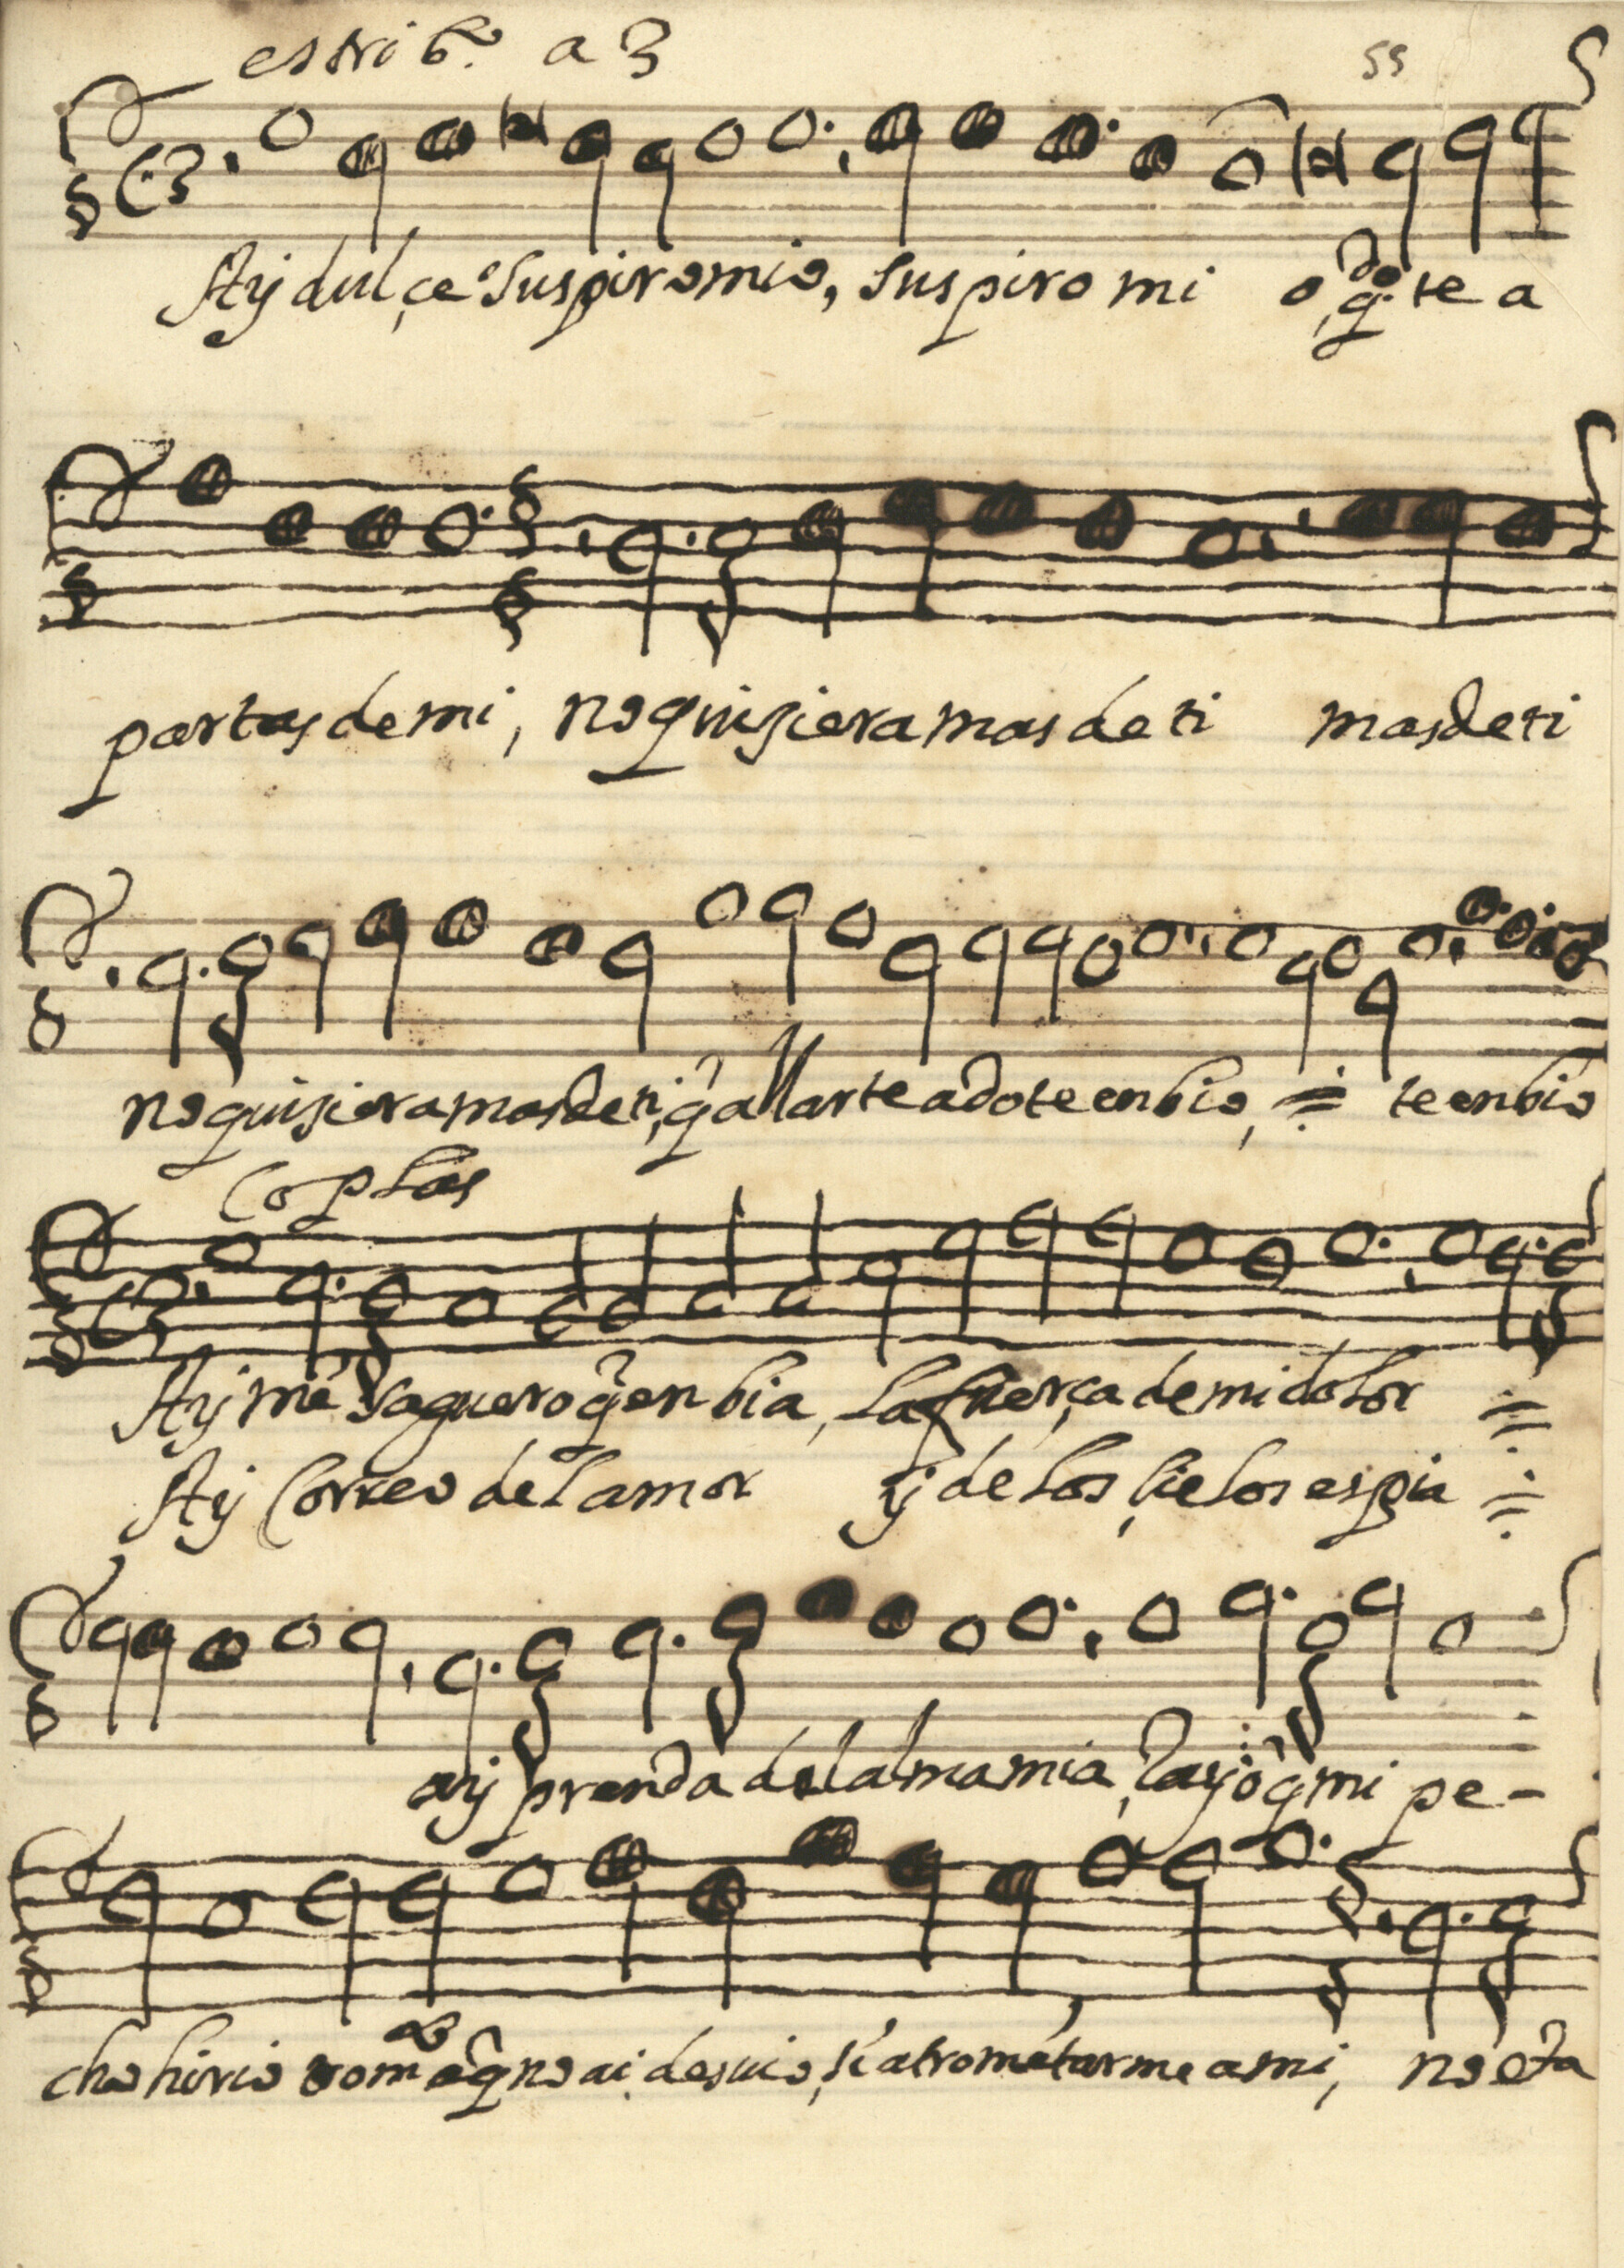 estrib.º a 3
55
Ay dulçe suspiro mio, suspiro mi o, q.do te a
partas de mi, no quisiera mas de ti mas de ti
no quisiera mas de ti, q̃ allarte ado te enbio, te enbio
Coplas
Ay mẽsaguero q̃ enbia, la fuerça de mi dolor
Ay Correo del amor y de los çielos espia
ay prenda del alma mia, q̃ mi pe-
cho hirio q̃ no ai desuio, a mi, no